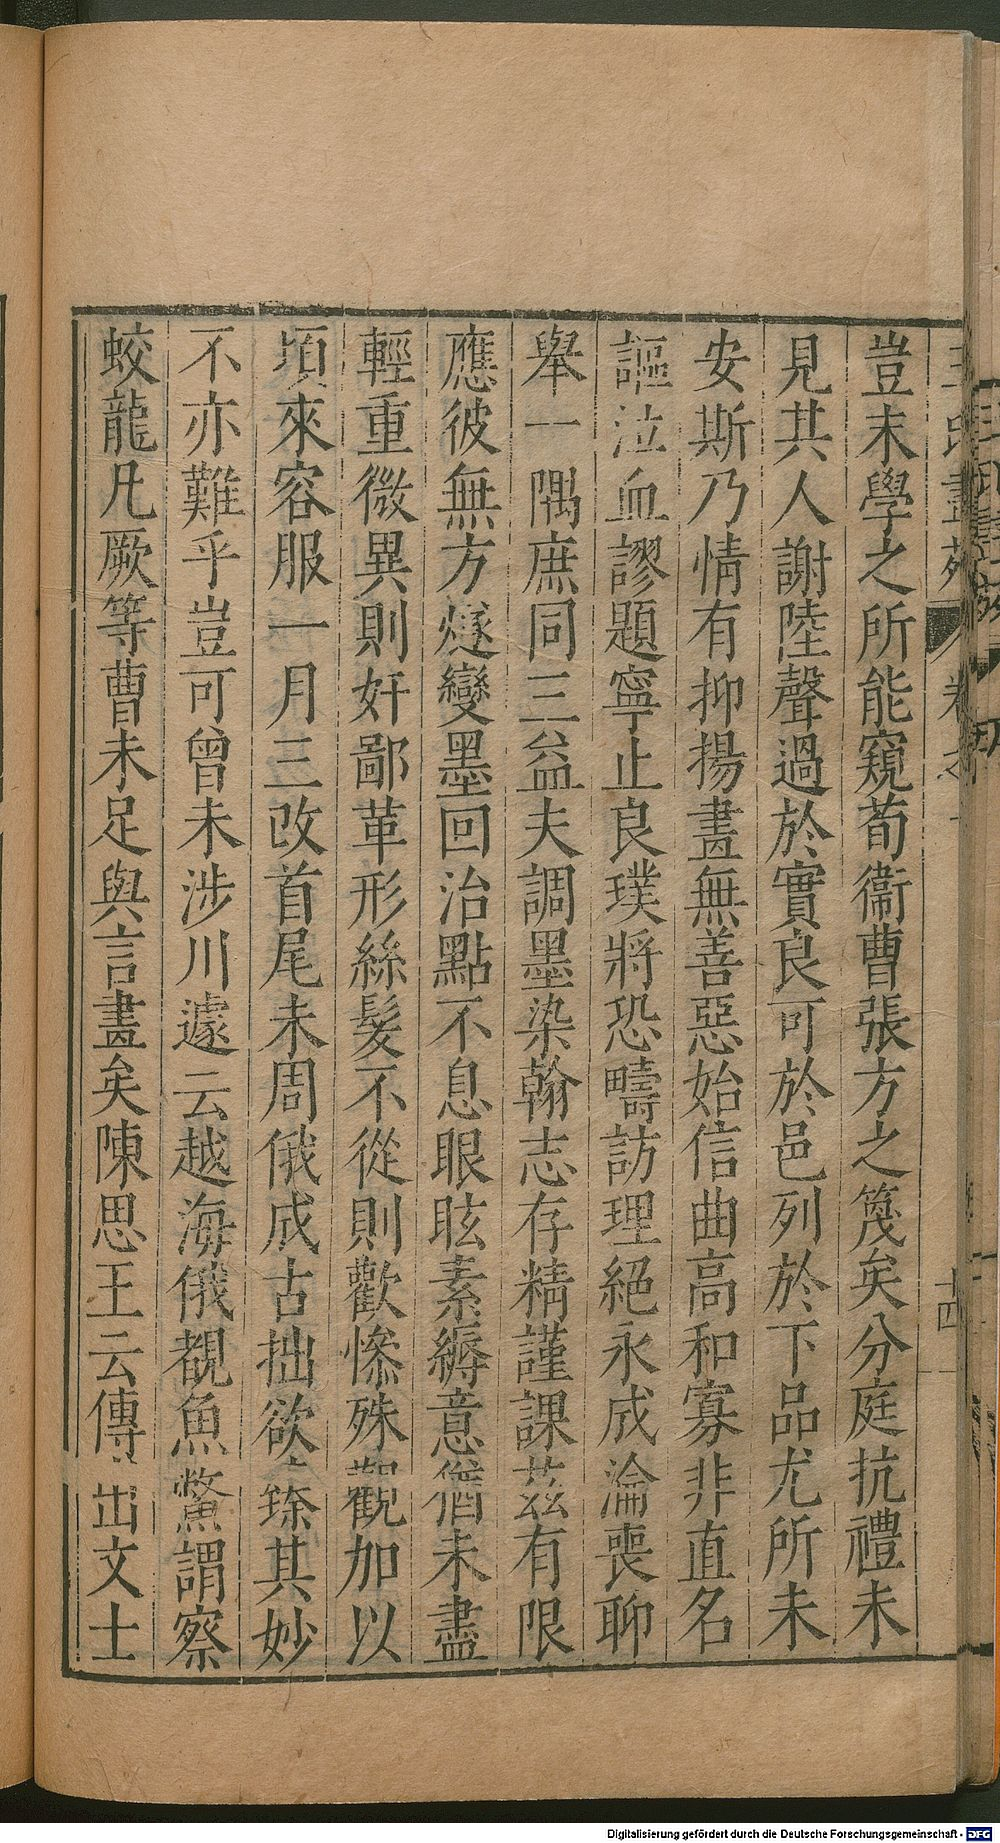 豈末學之所能窺荀衞曹張方之篾矣分庭抗禮未
見其人謝陸聲過於實良可於邑列於下品尤所未
安斯乃情有抑揚畫無善惡始信曲高和寡非直名
謳泣血謬題寧止良璞將恐疇訪理絕永成淪喪聊
舉一隅庶同三益夫調墨染翰志存精謹課茲有限
應彼無方燧變墨回治點不息眼眩素縟意猶未盡
輕重微異則奸鄙革形絲髮不從則歡慘殊觀加以
頃來容服一月三改首尾未周俄成古拙欲臻其妙
不亦難乎豈可曾未涉川遽云越海俄覩魚鱉謂察
蛟龍凡厥等曹未足與言畫矣陳思王云傳出文士
王氏畫苑 卷之一 十四
Digitalisierung gefördert durch die Deutsche Forschungsgemeinschaft - DFG